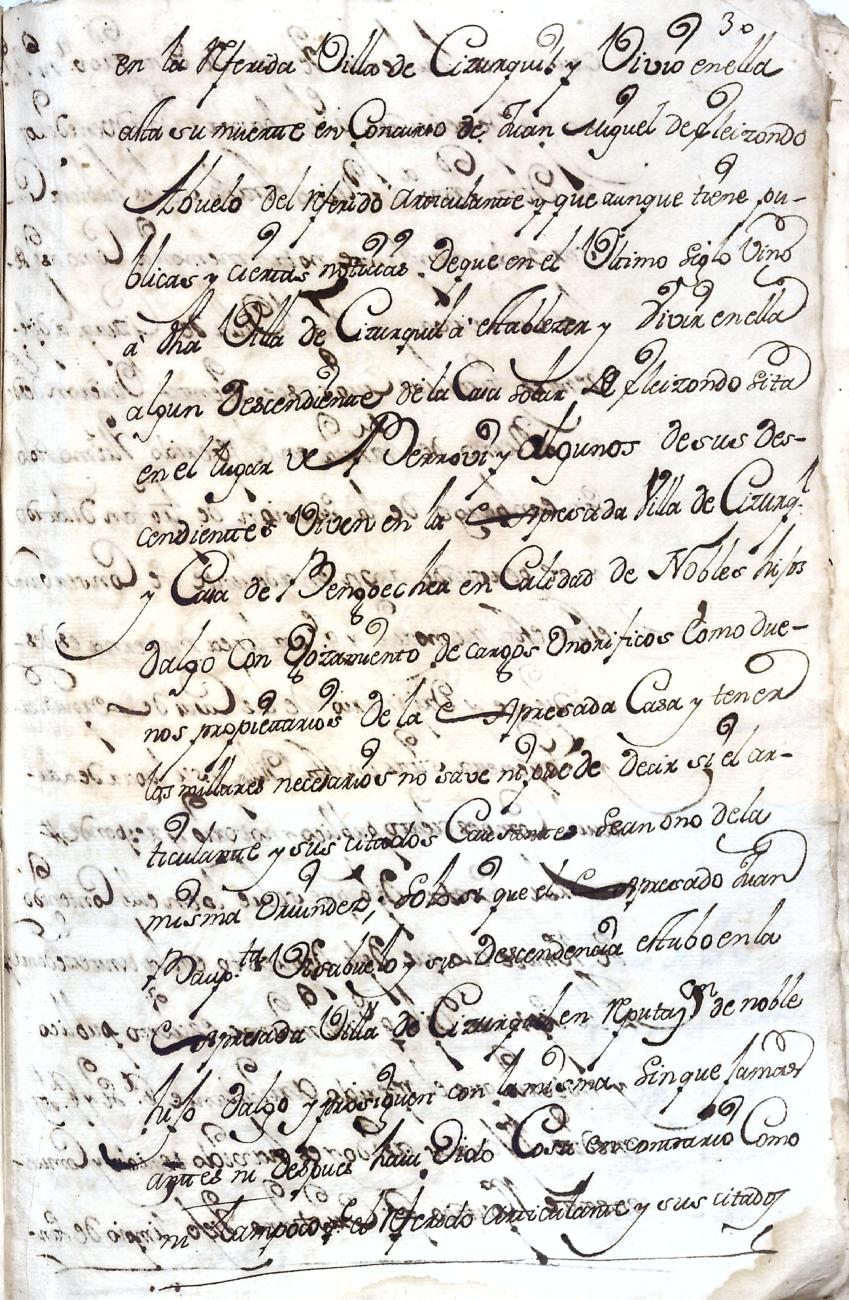 30
en la Referida Villa de Cizurquil y Vivio en ella
asta su muerte en Concurso de Juan Miguel de Fleizondo
Abuelo del referido articulante y que aunque tiene pu-
blicas y ciertas noticias de que en el Ultimo siglo Vino
a dha Villa de Cizurquil a establezer y Vivir en ella
algun Descendiente de la Casa solar de Fleizondo sita
en el lugar de Berrovi y algunos de sus des-
cendientes Viven en la Espresada Villa de Cizurql
y Casa de Bengoechea en Calidad de Nobles hijos
dalgo Con Gozamiento de cargos Onorificos Como due-
nos propietarios de la Espresada Casa y tener
los millares necesarios no save ni puede decir si el ar-
ticulante y sus citados Causantes sean o no de la
misma Oriundez, solo si que el Espresado Juan
Baup.ta Visabuelo y su Descendencia estubo en la
Espresada Villa de Cizurquil en Reputazn de noble
hijo dalgo y prosiguen con la misma sin que jamas
antes ni despues haia Oido Cosa en contrario Como
ni tampoco que el Referido articulante y sus citados